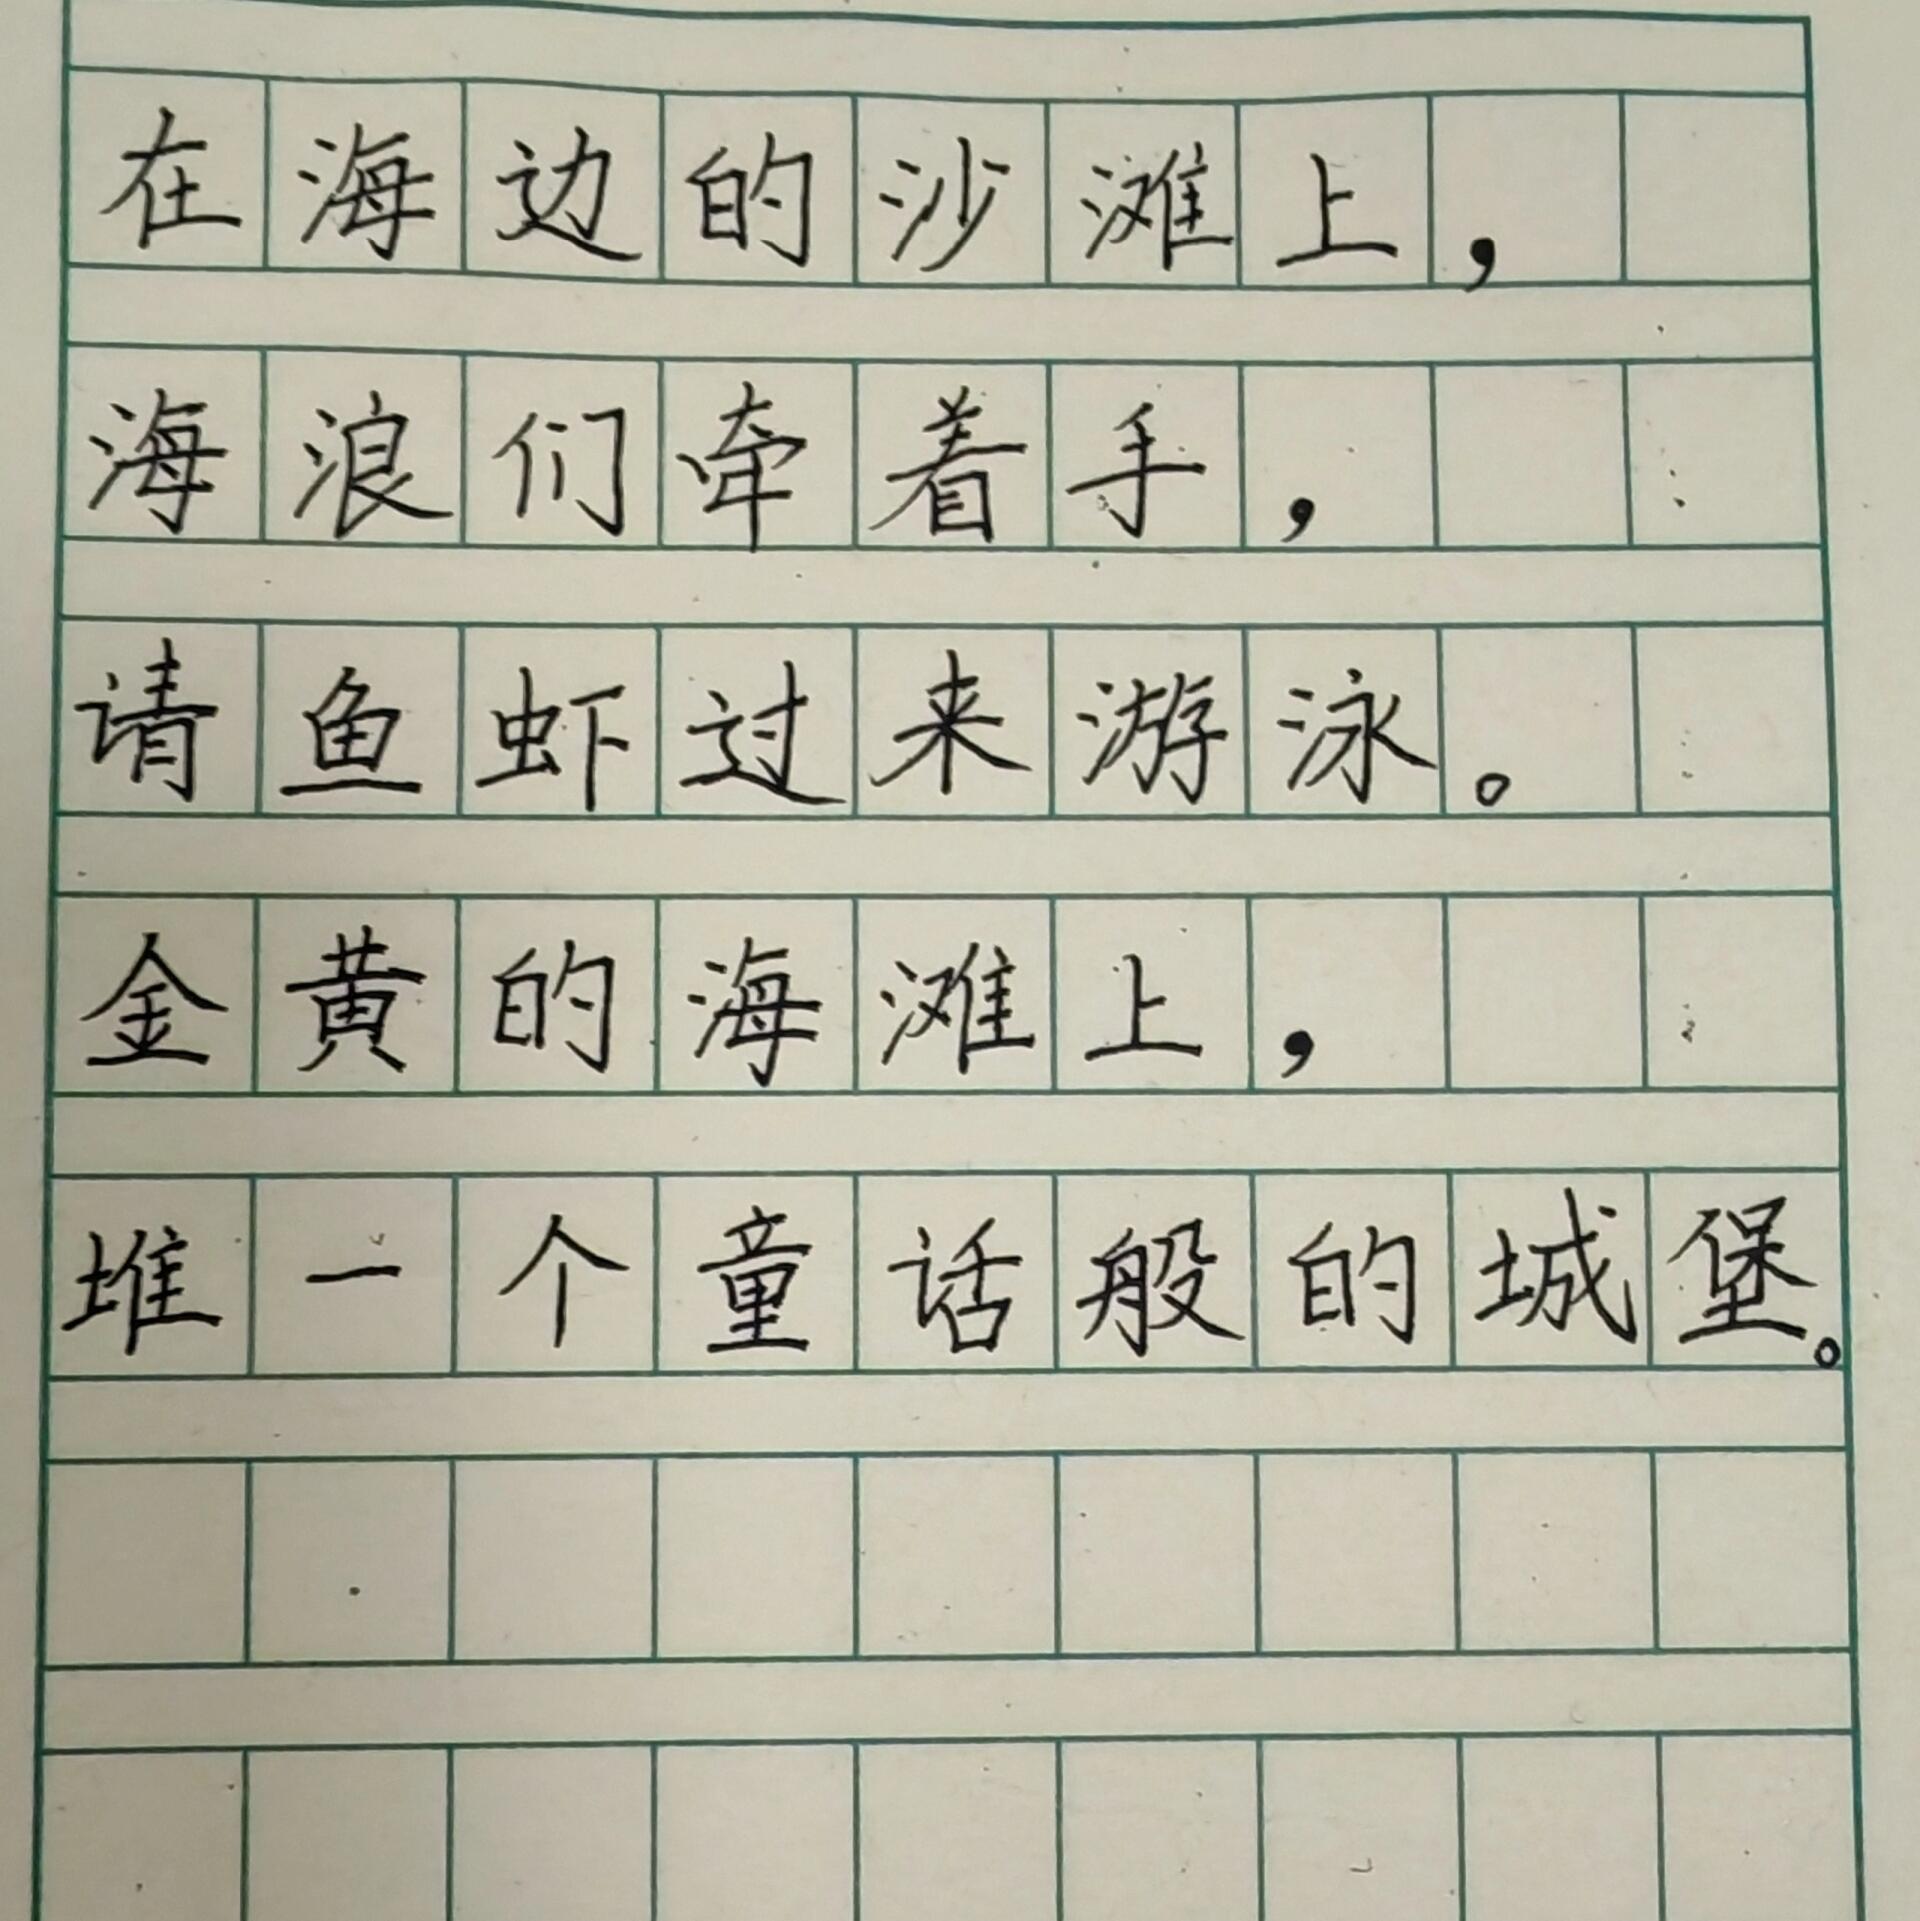 在海边的沙滩上，
海浪们牵着手，
请鱼虾过来游泳。
金黄的海滩上，
堆一个童话般的城堡。